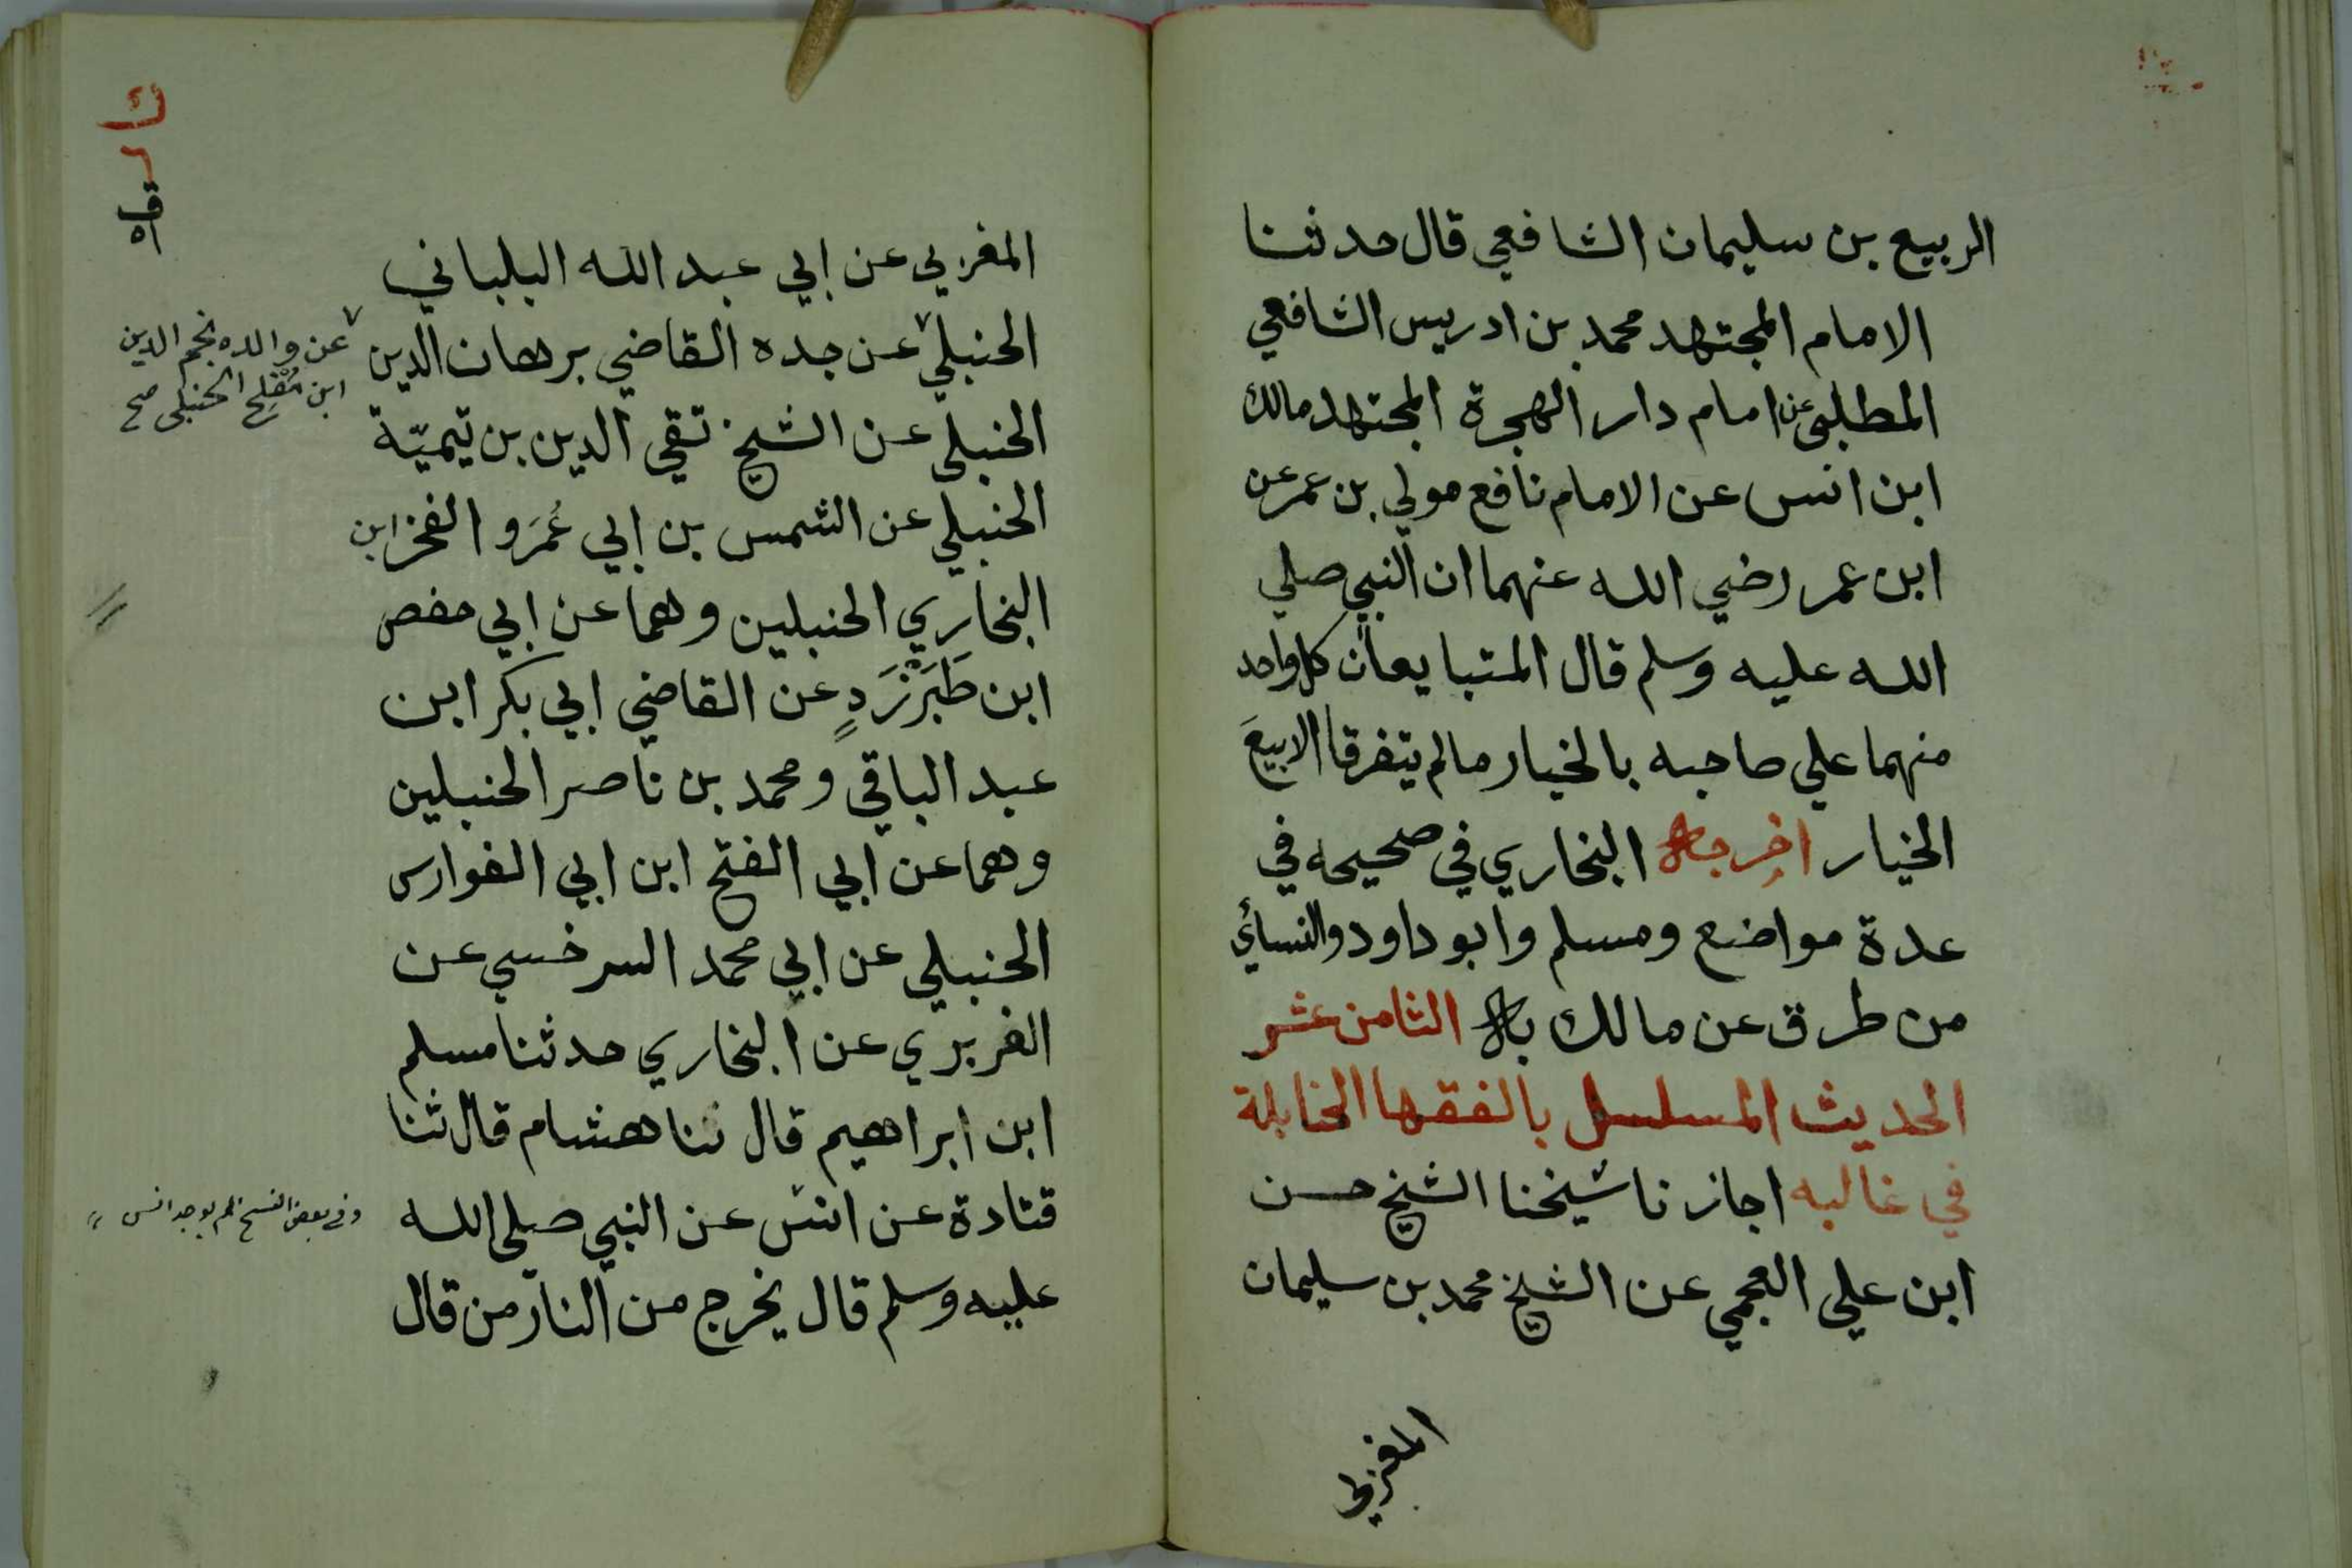 الربيع بن سليمان الشافعي قال حدثنا
الامام المجتهد محمد بن ادريس الشافعي
المطلبي عن امام دار الهجرة المجتهد مالك
ابن انس عن الامام نافع مولي بن عمر عن
ابن عمر رضي الله عنهما ان النبي صلي
الله عليه وسلم قال المتبايعان كل واحد
منهما علي صاحبه بالخيار مالم يتفرقا الا بيعَ
الخيار اخرجه البخاري في صحيحه في
عدة مواضع ومسلم وابو داود والنسائي
من طرق عن مالك به الثامن عشر
الحديث المسلسل بالفقها الحنابلة
في غالبه اجازنا شيخنا الشيخ حسن
ابن علي العجمي عن الشيخ محمد بن سليمان
المغربي
المغربي عن ابي عبد الله البلباني
الحنبلي عن جده القاضي برهان الدين
عن والده نجم الدين
ابن مُفْلِح الحنبلي صح
الحنبلي عن الشيخ تقي الدين بن تيميّة
الحنبلي عن الشمس بن ابي عُمَر و الفخر ابن
البخاري الحنبلين وهما عن ابي حفص
ابن طَبَرْزَدٍ عن القاضي ابي بكر ابن
عبد الباقي ومحمد بن ناصر الحنبلين
وهما عن ابي الفتح ابن ابي الفوارس
الحنبلي عن ابي محمد السرخسي عن
الفربري عن البخاري حدثنا مسلم
ابن ابراهيم قال ثنا هشام قال ثنا
قتادة عن انس عن النبي صلي الله
وفي بعض النسخ لم يوجد انس
عليه وسلم قال يخرج من النار من قال